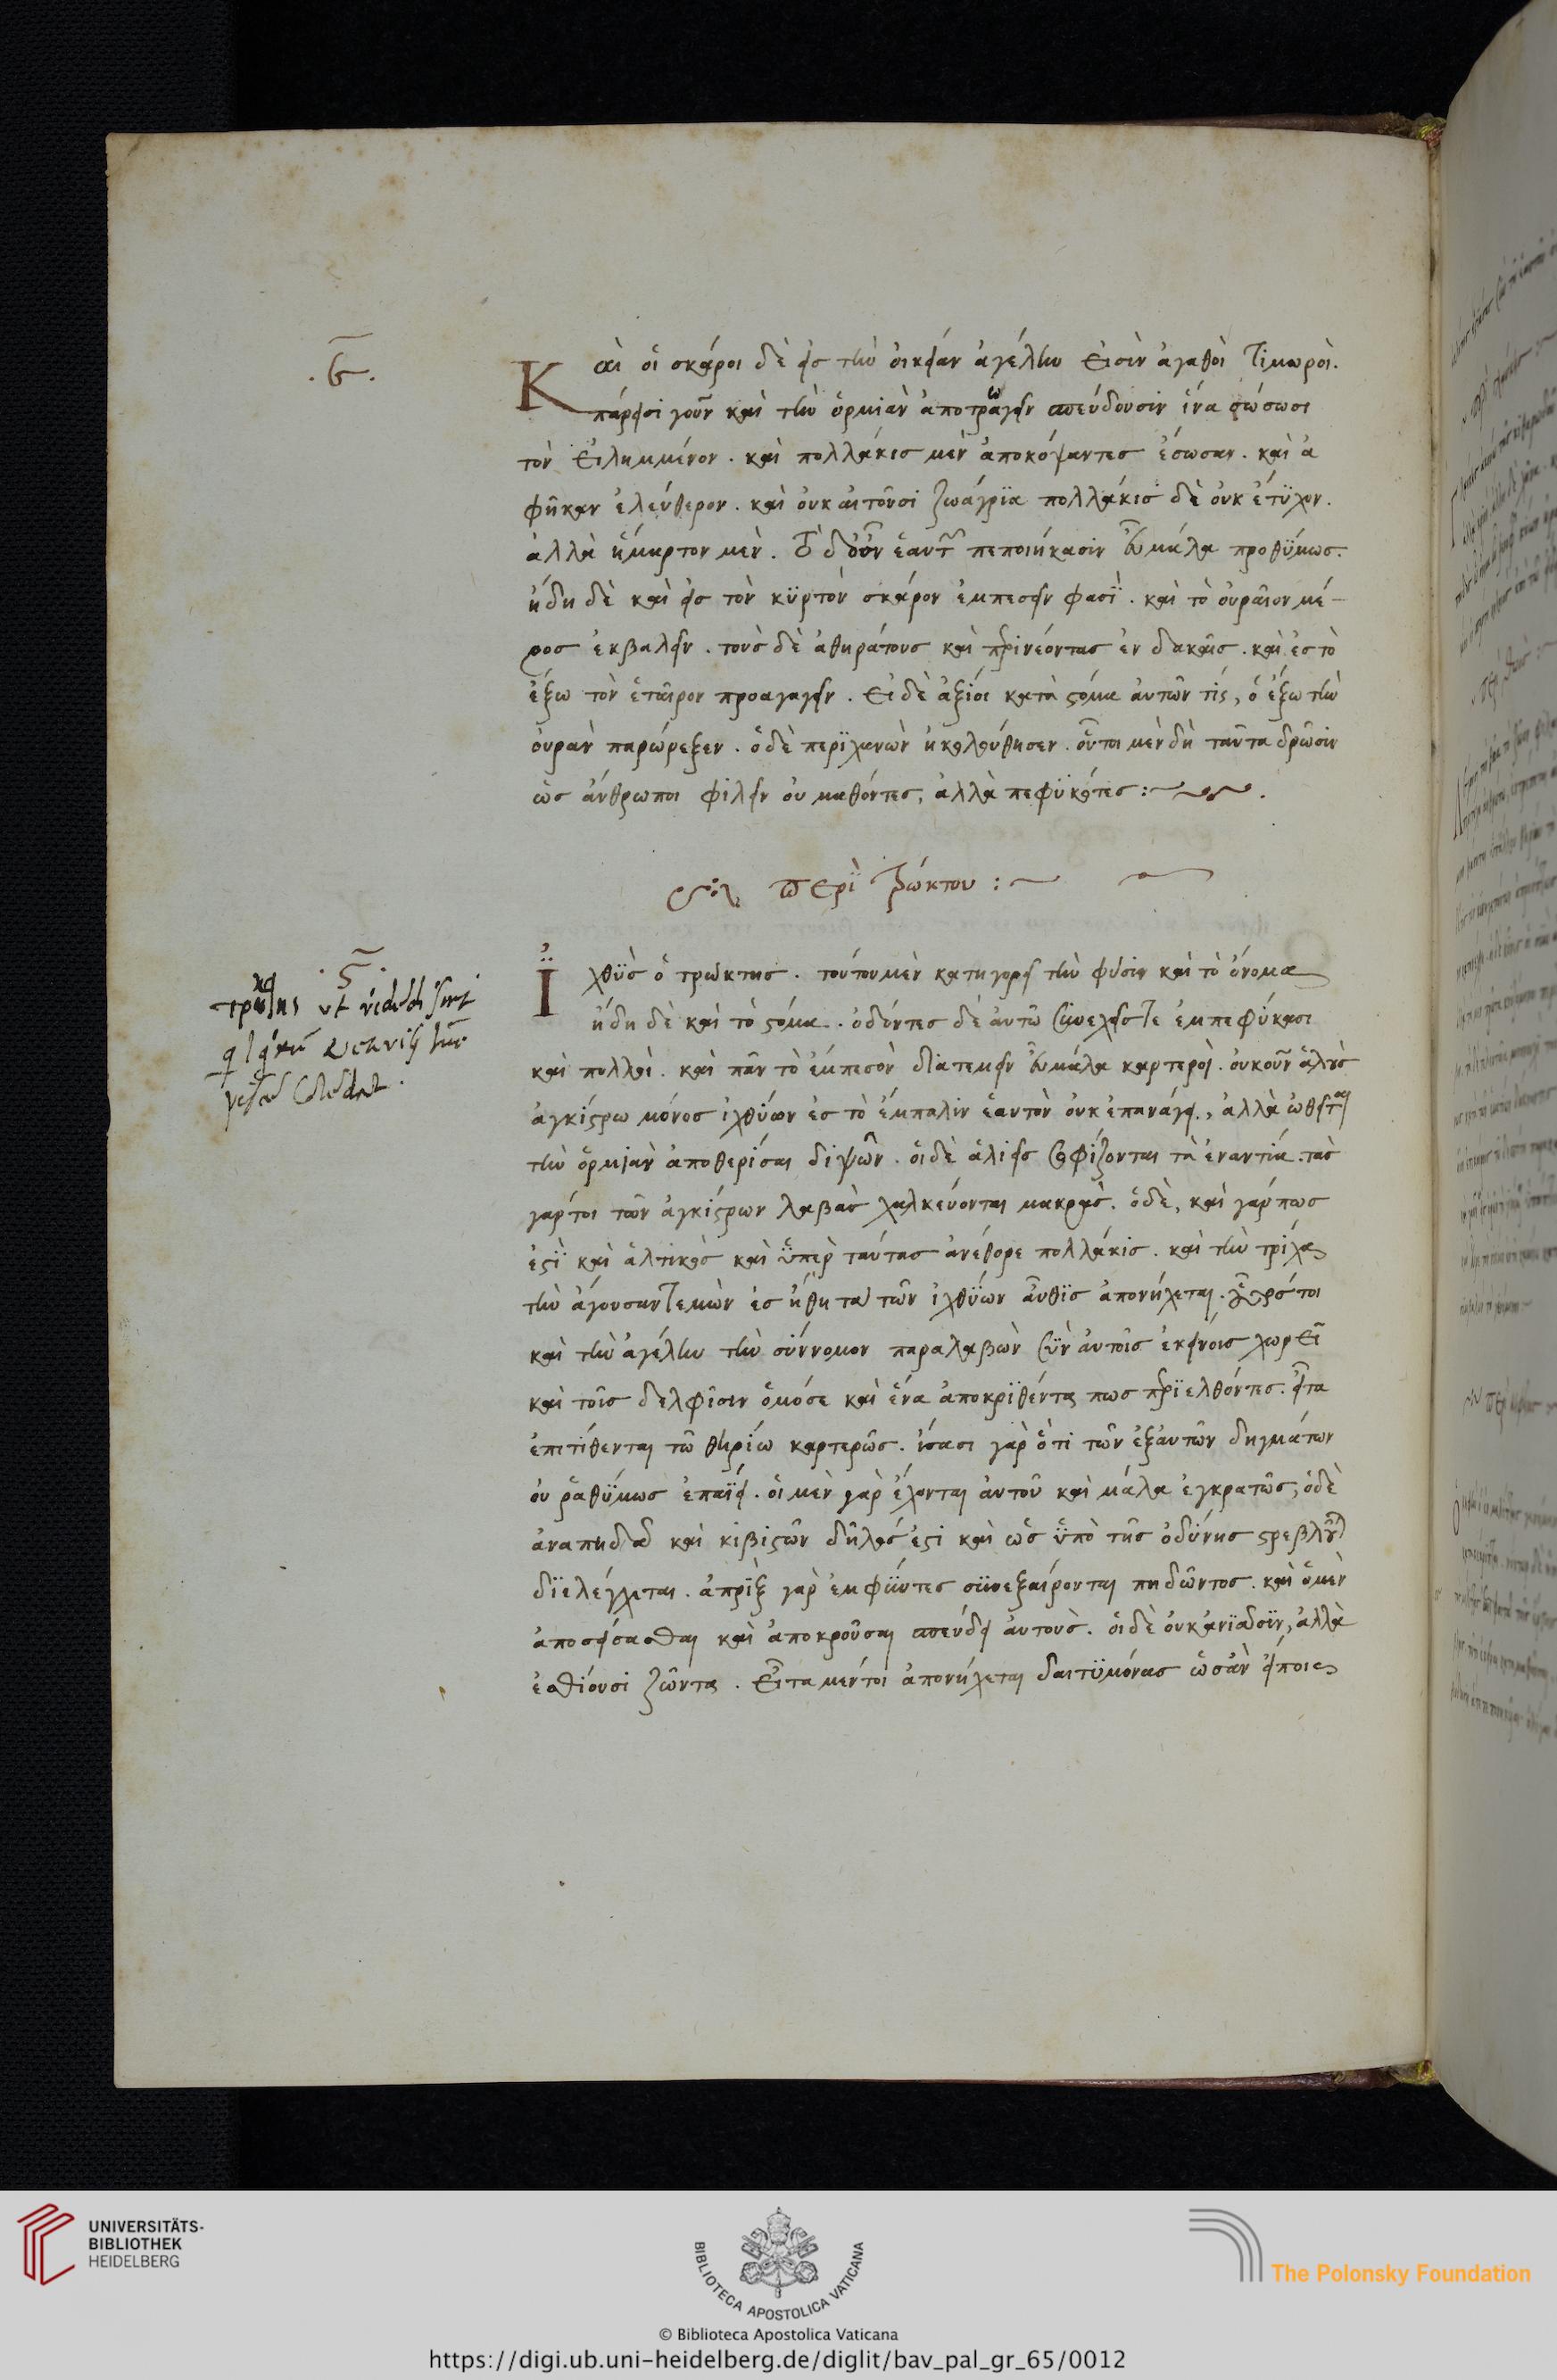 .ϛ.
Καὶ οἱ σκάροι δὲ εἰς τὴν οἰκείαν ἀγέλην εἰσὶν ἀγαθοὶ τιμωροὶ.
πάρεισι γοῦν καὶ τὴν ὁρμιὰν ἀποτρώγειν σπεύδουσιν ἵνα σώσωσι
τὸν εἰλημμένον. καὶ πολλάκις μὲν ἀποκόψαντες ἔσωσαν. καὶ ἀ
φῆκαν ἐλεύθερον. καὶ οὐκ αιτοῦσι ζωάγρϊα πολλάκις δὲ οὐκ ἔτϋχον.
ἀλλὰ ἥμαρτον μὲν. τὸ δ οὖν ἑαυτῶν πεποιήκασιν εὖ μάλα προθϋμως.
ἤδη δὲ καὶ εἰς τὸν κϋρτὸν σκάρον ἐμπεσεῖν φασϊ. καὶ τὸ οὐραῖον μέ-
ρος ἐκβαλεῖν. τοὺς δὲ ἀθηράτους καὶ περινέοντας ἐνδακεῖν. καὶ ἐς τὸ
ἔξω τὸν ἑταῖρον προαγαγεῖν. εἰ δὲ ἀξίοι κατὰ στόμα αὐτῶν τίς, ὁ ἔξω τὴν
οὐρὰν παρώρεξεν. ὁ δὲ περϊχανὼν ἠκολούθησεν. οὗτοι μὲν δὴ ταῦτα δρῶσιν
ὡς ἄνθρωποι φιλεῖν οὐ μαθόντες, ἀλλὰ πεφϋκότες:
περὶ τρώκτου:
.ϛ.
Ἰχθϋς ὁ τρώκτης. τούτου μὲν κατηγορεῖ τὴν φύσιν καὶ τὸ ὄνομα
ἤδη δὲ καὶ τὸ στόμα. ὀδόντες δὲ αὐτῶ συνεχεῖς τε ἐμπεφύκασι
καὶ πολλοὶ. καὶ πᾶν τὸ ἐμπεσὸν διατεμεῖν εὖ μάλα καρτεροὶ. οὐκοῦν ἁλοὺς
ἀγκίστρω μόνος ἰχθύων ἐς τὸ ἔμπαλιν ἑαυτὸν οὐκ ἐπανάγει, ἀλλὰ ὠθεῖται
τὴν ὁρμιὰν ἀποθερίσαι διψῶν. οἱ δὲ ἁλιεῖς σοφίζονται τὰ ἐναντία. τὰς
γάρ τοι τῶν ἀγκίστρων λαβὰς χαλκεύονται μακρὰς. ὁ δὲ, καὶ γάρ πως
ἐστϊ καὶ ἁλτικὸς καὶ ὑπὲρ ταύτας ἀνέθορε πολλάκις. καὶ τὴν τρίχα
τὴν ἄγουσαν τεμὼν ἐς ἤθη τὰ τῶν ἰχθϋων αὖθϊς ἀπονήχεται.
καὶ τὴν ἀγέλην τὴν σύννομον παραλαβὼν σὺν αὐτοῖς ἐκείνοις χωρεῖ
καὶ τοῖς δελφῖσιν ὁμόσε καὶ ἕνα ἀποκρϊθέντα πως περϊελθόντες. εἶτα
ἐπιτίθενται τῶ θηρίω καρτερῶς. ἴσασι γὰρ ὅτι τῶν ἐξ αὐτῶν δηγμάτων
οὐ ῥαθϋμως ἐπαΐει. οἱ μὲν γὰρ ἔχονται αὐτοῦ καὶ μάλα ἐγκρατῶς, ὁ δὲ
ἀναπηδᾶ καὶ κϋβιστῶν δῆλός ἐστι καὶ ὡς ὑπὸ τῆς ὀδύνης στρεβλοῦται
δϊελέγχεται. ἀπρὶξ γὰρ ἐμφϋντες συνεξαίρονται πηδῶντος. καὶ ὁ μὲν
ἀποσείσασθαι καὶ ἀποκροῦσαι σπεύδει αὐτοὺς. οἱ δὲ οὐκ ἀνϊᾶσϊν, ἀλλὰ
ἐσθίουσι ζῶντα. εἶτα μέντοι ἀπονήχεται δαιτϋμόνας ὡς ἂν εἴποις
UNIVERSITÄTS-
BIBLIOTHEK
HEIDELBERG
BIBLIOTECA APOSTOLICA VATICANA
The Polonsky Foundation
© Biblioteca Apostolica Vaticana
https://digi.ub.uni-heidelberg.de/diglit/bav_pal_gr_65/0012